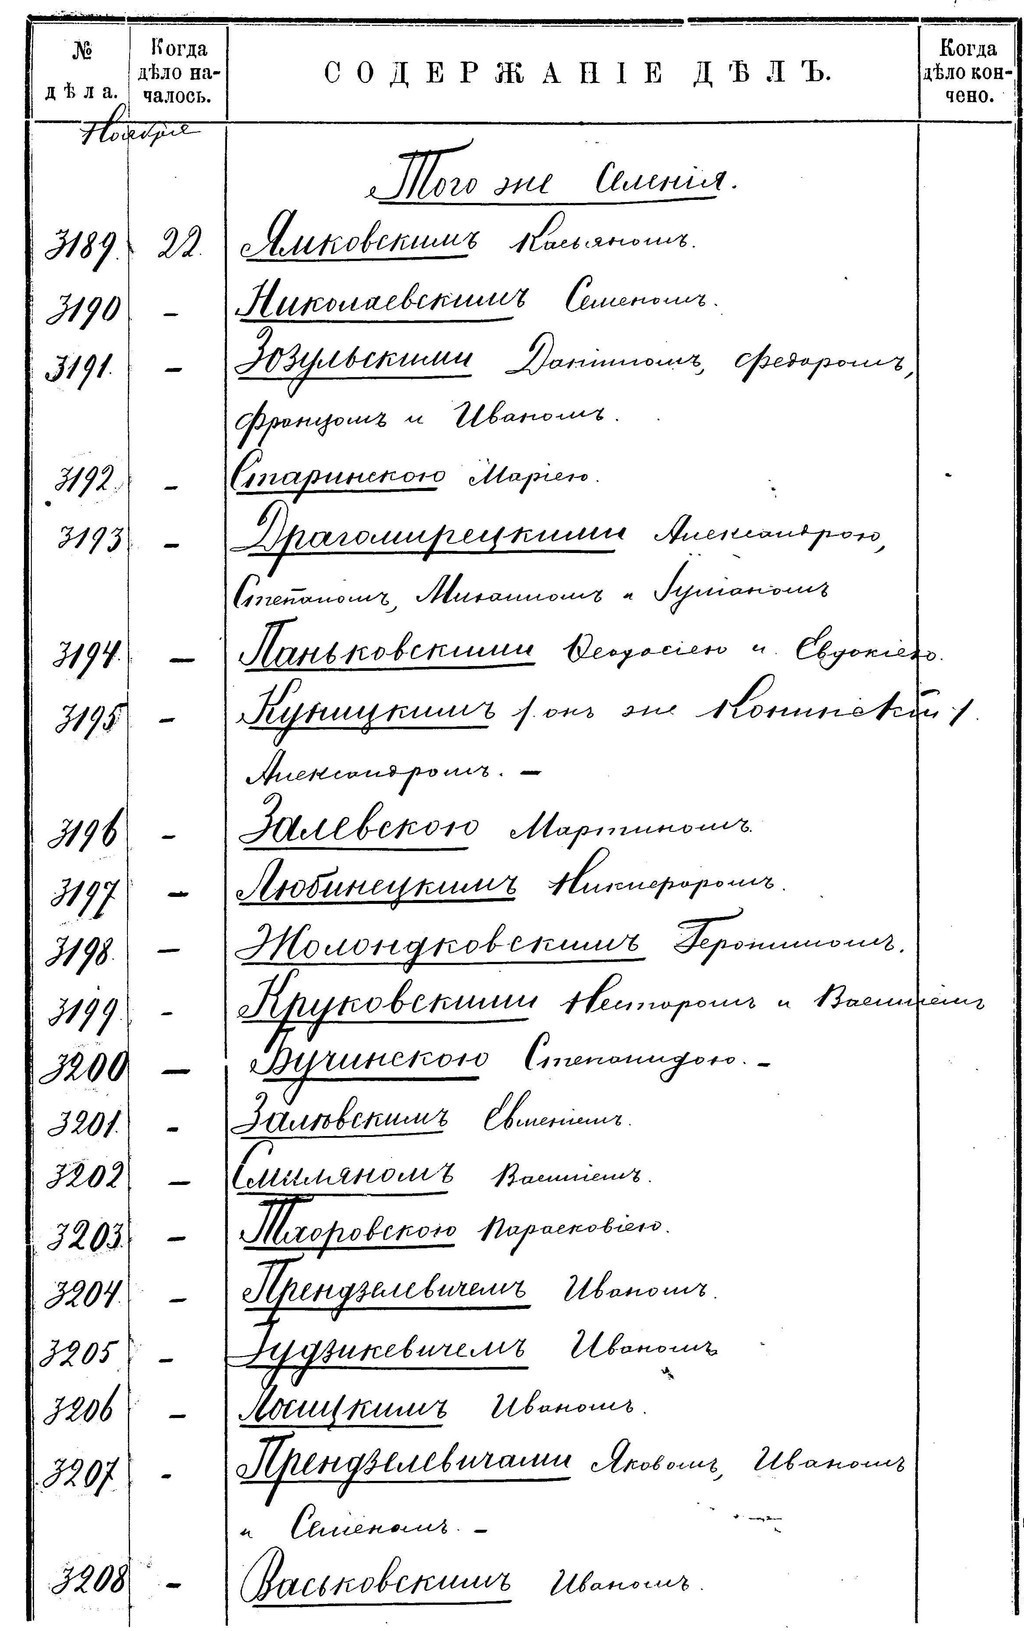 № дѣла.
Когда дѣло началось.
СОДЕРЖАНІЕ ДѢЛЪ.
Когда дѣло кончено.
Ноября
Того же Селенія.
3189. 22. Ямковскимъ Касьяномъ.
3190 - Николаевскимъ Семеномъ.
3191. - Зозульскими Даніиломъ, Федоромъ,
Францомъ и Иваномъ.
3192. - Старинскою Маріею.
3193 - Драгомирецкими Александрою,
Степаномъ, Михаиломъ и Іуліаномъ
3194. - Паньковскими Ѳеодосіею и Евдокіею.
3195 - Куницкимъ /онъ же
Александромъ. -
3196 - Залевскою Мартиномъ.
3197 - Любинецкимъ Никифоромъ.
3198. - Жолондковскимъ Геронимомъ.
3199. - Круковскими Несторомъ и Василіемъ
3200 - Бучинскою Степанидою. -
3201. - Залювскимъ Евменіемъ.
3202 - Смиляномъ Василіемъ.
3203. - Тхоровскою Парасковіею.
3204. - Прендзелевичемъ Иваномъ.
3205 - Гудзикевичемъ Иваномъ
3206 - Лосицкимъ Иваномъ.
3207 - Прендзелевичами Яковомъ, Иваномъ
и Семеномъ. -
3208 - Васьковскимъ Иваномъ.